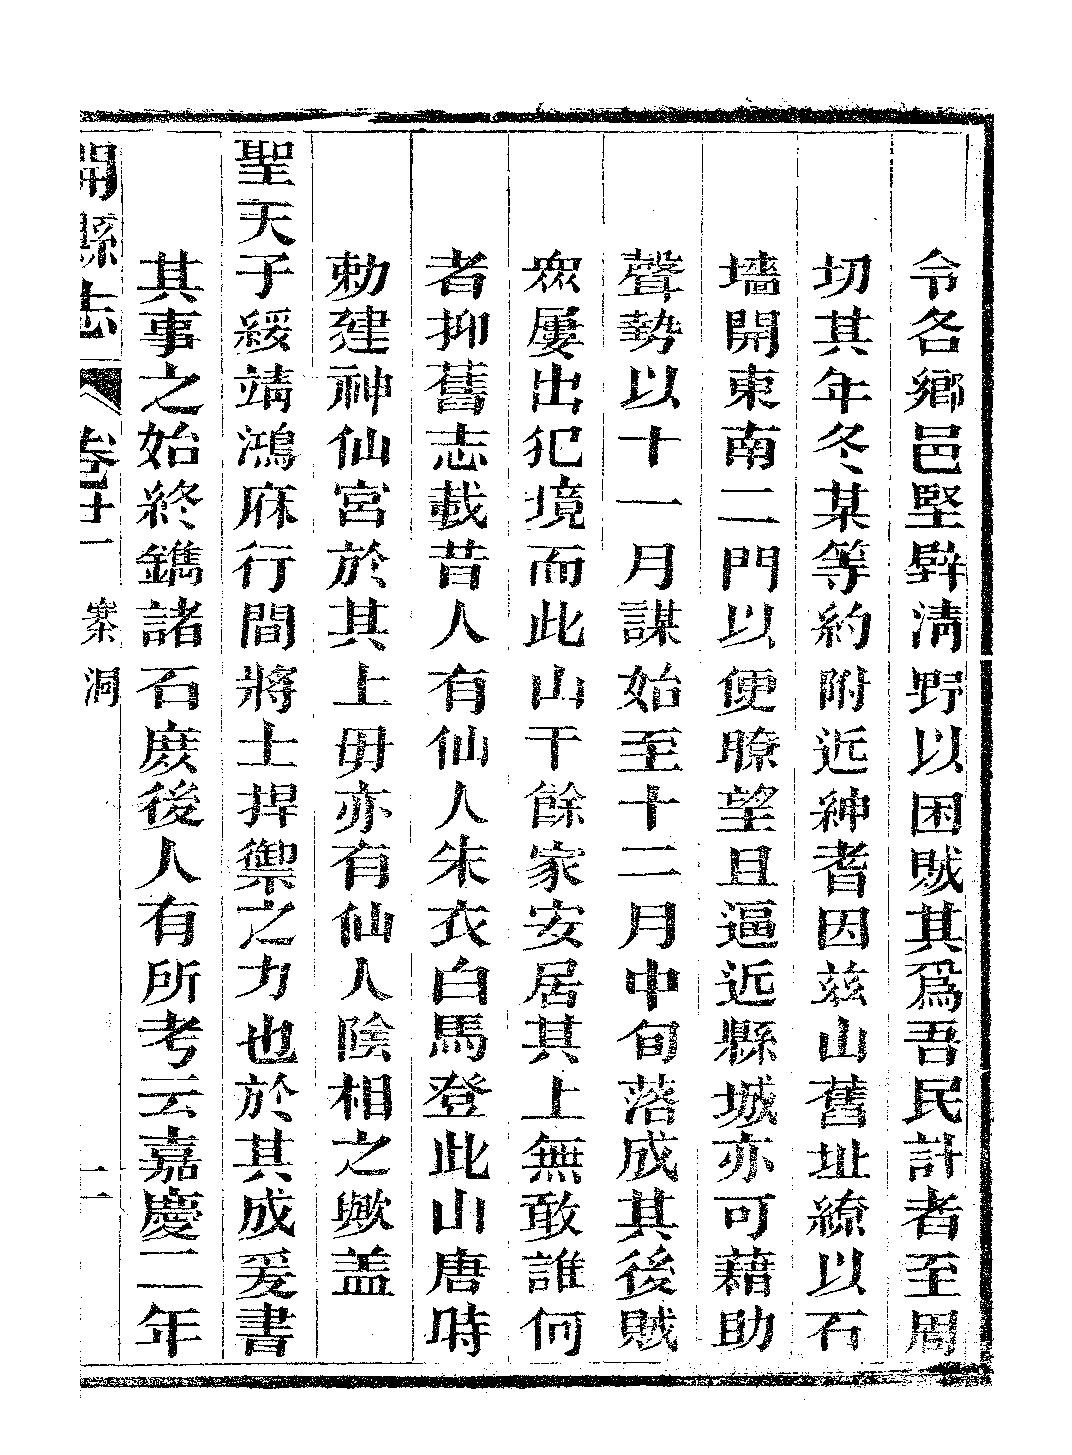 令各鄉邑堅壁清野以困賊其爲吾民計者至周
切其年冬某等約附近紳耆因兹山舊址繚以石
墻開東南二門以便瞭望且逼近縣城亦可藉助
聲勢以十一月謀始至十二月中旬落成其後賊
衆屢出犯境而此山千餘家安居其上無敢誰何
者抑舊志載昔人有仙人朱衣白馬登此山唐時
勅建神仙宮於其上毋亦有仙人陰相之歟盖
聖天子綏靖鴻庥行間將士捍禦之力也於其成爰書
其事之始終鐫諸石庻後人有所考云嘉慶二年
開縣志 卷廿一 寨洞 二一